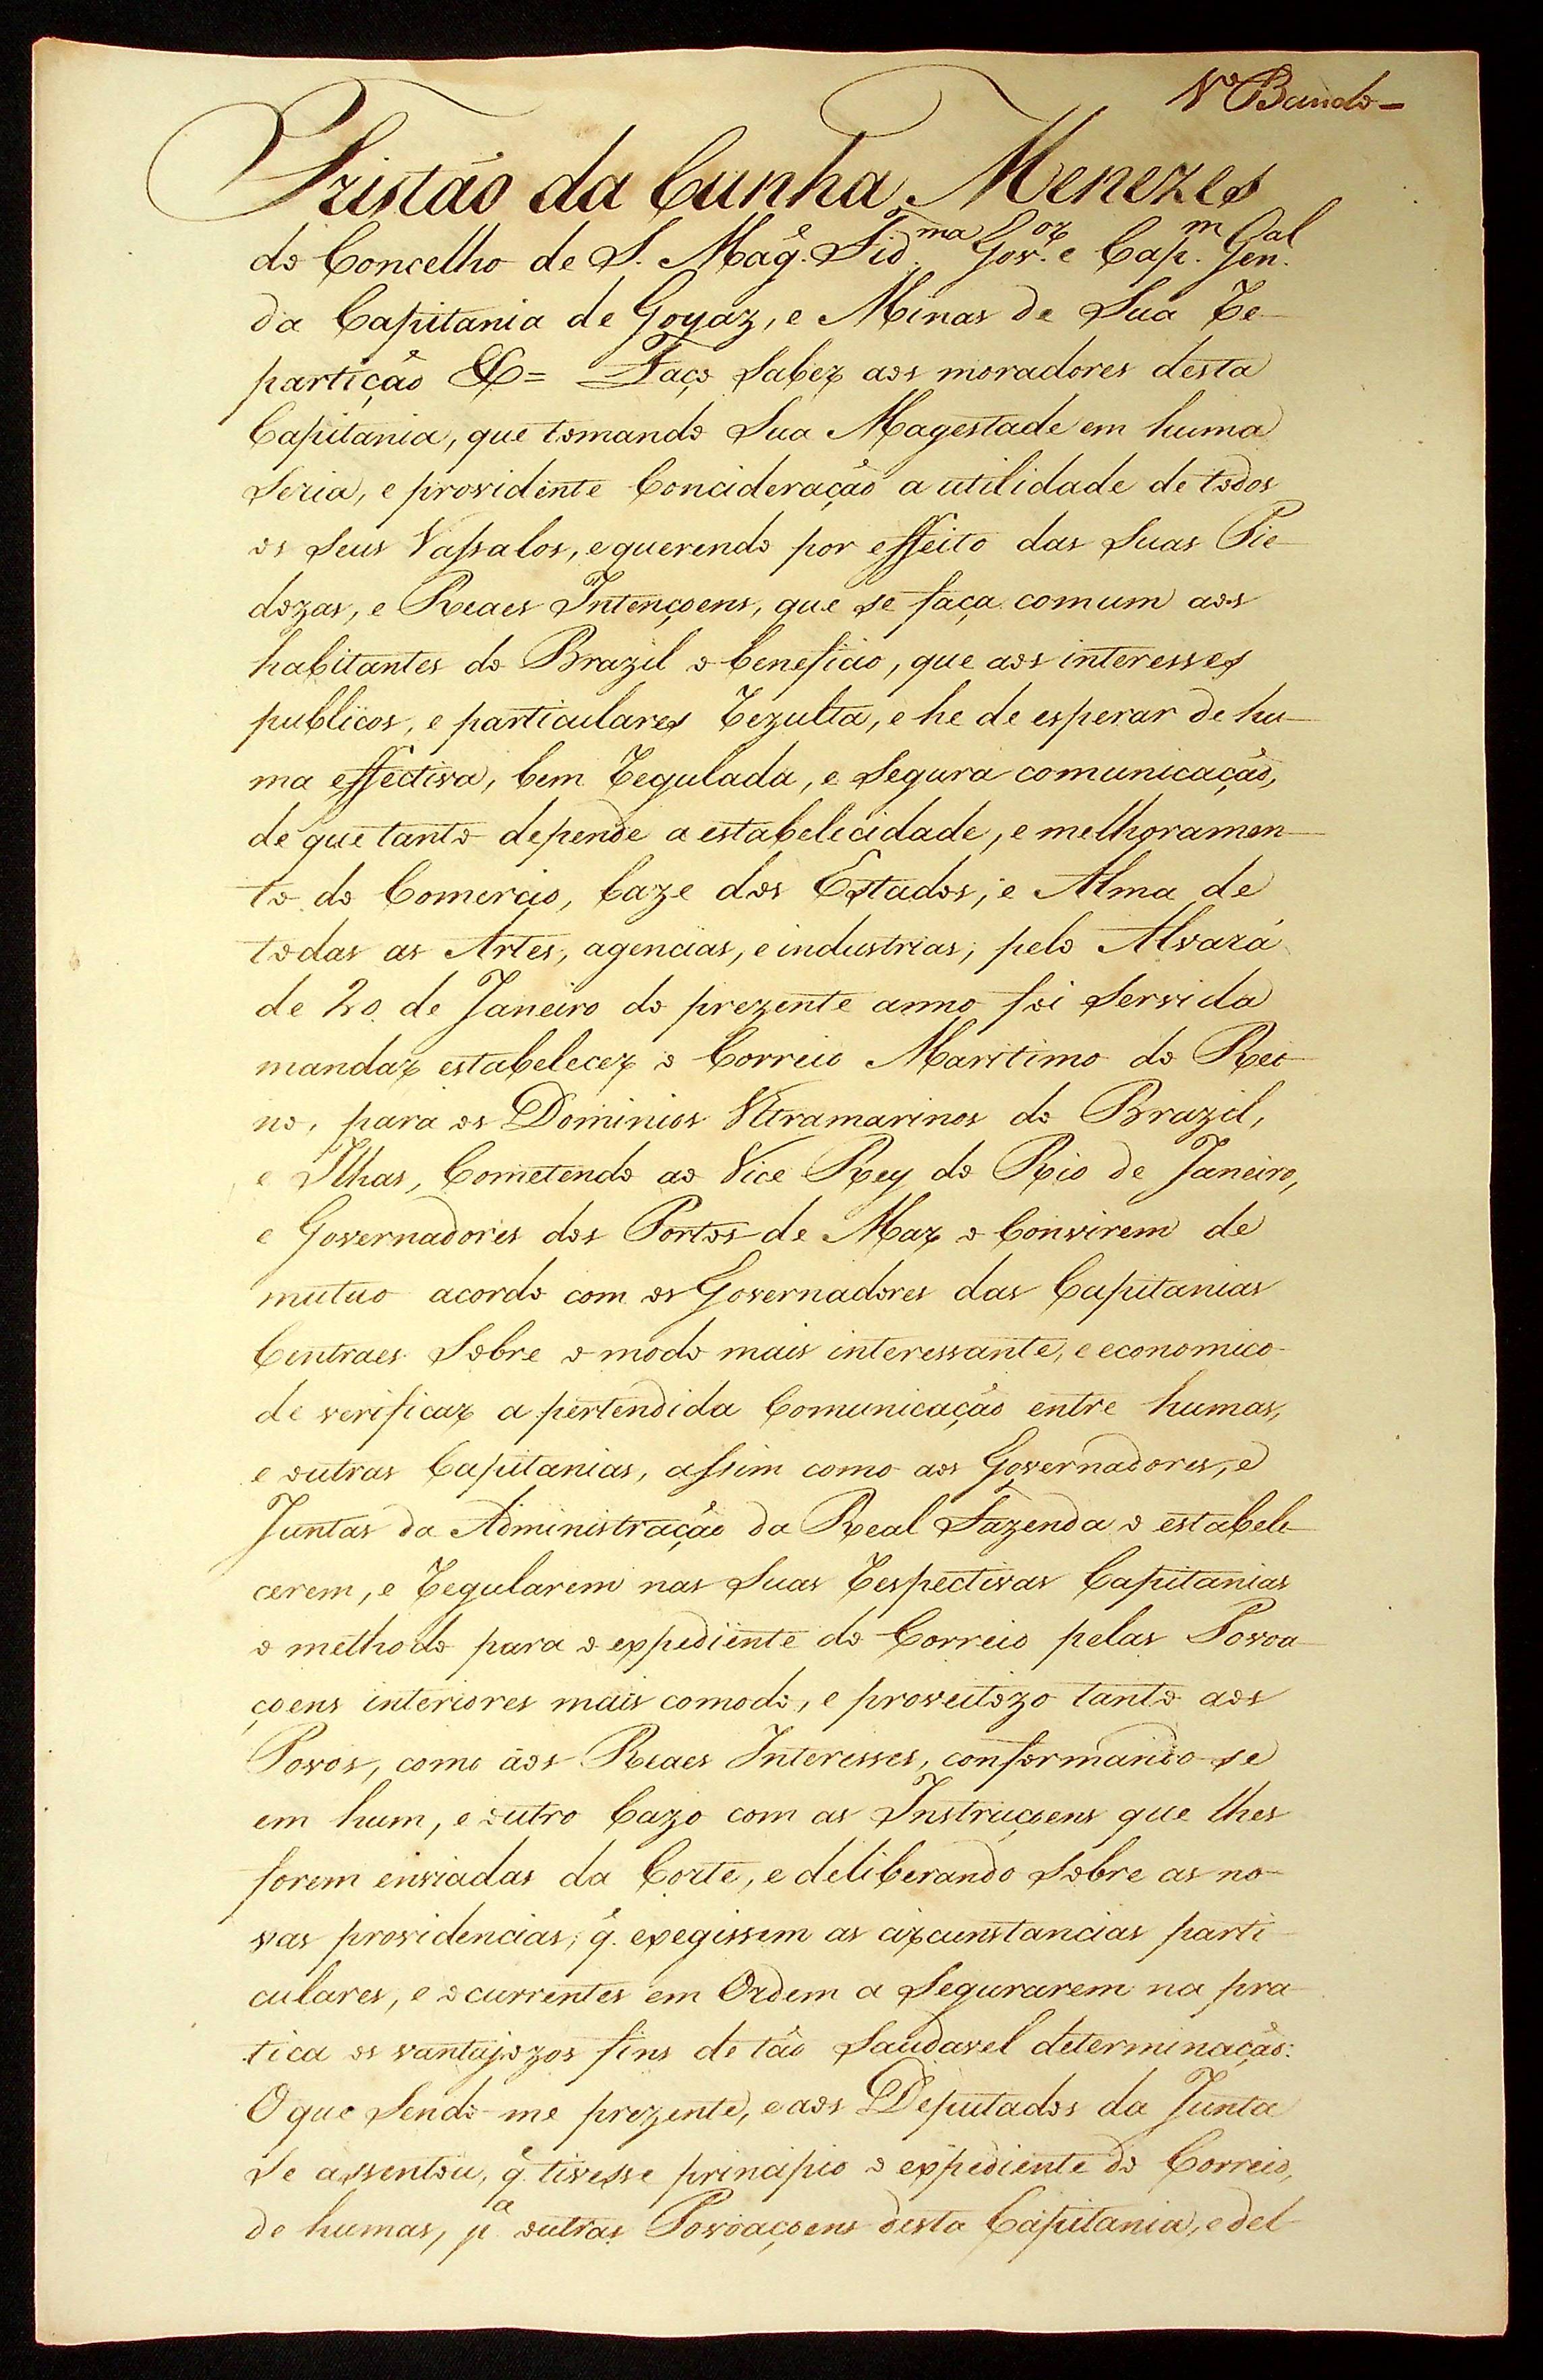 Nº Bando-
Tristão da Cunha Menezes
do Concelho de S. Mag.e Fid.ma Gov.or e Cap.m Gen.al
da Capitania de Goyaz, e Minas de Sua Re-
partição &= Faço Saber aos moradores desta
Capitania, que tomando Sua Magestade em huma
Seria, e providente Concideração a utilidade de todos
os Seus Vassalos, e querendo por effeito das Suas Pie-
dozas, e Reaes Intençoens, que se faça comum aos
habitantes do Brazil o beneficio, que aos interesses
publicos, e particulares Rezulta, e he de esperar de hu-
ma effectiva, bem Regulada, e Segura comunicação,
de que tanto depende a estabelicidade, e melhoramen-
to do Comercio, baze dos Estados, e Alma de
todas as Artes, agencias, e industrias; pelo Alvará
de 20 de Janeiro do prezente anno foi Servida
mandar estabelecer o Correio Maritimo do Rei-
no, para os Dominios Ultramarinos do Brazil,
e Ilhas, Cometendo ao Vice Rey do Rio de Janeiro,
e Governadores dos Portos de Mar o Convirem de
mutuo acordo com os Governadores das Capitanias
Centraes Sobre o modo mais interessante, e economico
de verificar a pertendida Comunicação entre humas,
e outras Capitanias, assim como aos Governadores, e
Juntas da Administração da Real Fazenda o estabele-
cerem, e Regularem nas Suas Respectivas Capitanias
o methodo para o expediente do Correio pelas Povoa-
çoens interiores mais comodo, e proveitozo tanto aos
Povos, como aos Reaes Interesses, conformando-se
em hum, e outro Cazo com as Instruçoens que lhes
forem enviadas da Corte, e deliberando Sobre as no-
vas providencias, q. exegissem as circunstancias parti-
culares, e occurrentes em Ordem a Segurarem na pra-
tica os vantajozos fins de tão Saudavel determinação:
O que Sendo-me prezente, e aos Deputados da Junta
Se assentou, q. tivesse principio o expediente do Correio,
de humas, p.a outras Povoaçoens desta Capitania, e del-